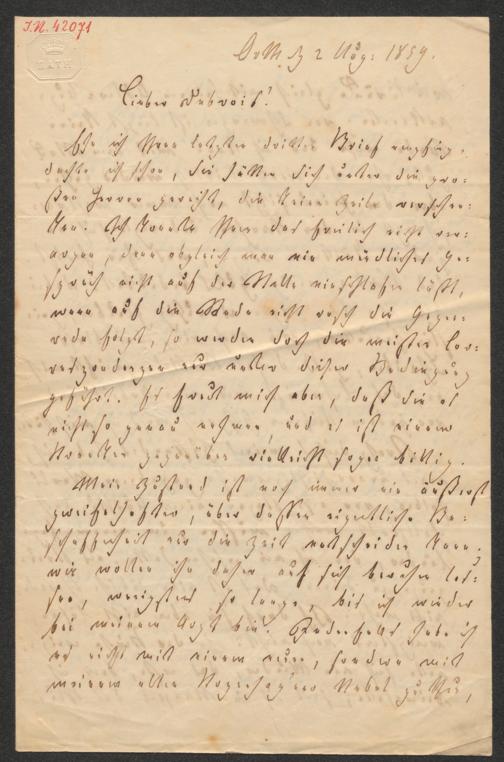 I.N. 42071
BATH
d 2 Aug: 1859.
Lieber Dubois!
Ehe ich Ihren letzten dritten Brief empfing,
dachte ich schon, Sie hätten sich unter die gro-
ßen Herren gereiht, die keine Zeile verschen-
ken. Ich konnte Ihnen das freilich nicht ver-
argen, denn obgleich man ein mündliches Ge-
spräch nicht auf der Stelle einschlafen läßt,
wenn auf die Rede nicht rasch die Gegen-
rede folgt, so werden doch die meisten Cor-
respondenzen nur unter dieser Bedingung
geführt. Es freut mich aber, daß Sie es
nicht so genau nehmen, und es ist einem
Kranken gegenüber vielleicht sogar billig.
Mein Zustand ist noch immer ein äußerst
zweifelhafter, über dessen eigentliche Be-
schaffenheit nur die Zeit entscheiden kann;
wir wollen ihn daher auf sich beruhen las-
sen, wenigstens so lange, bis ich wieder
bei meinem Arzt bin. Jedenfalls habe ich
es nicht mit einem neuen, sondern mit
meinem alten Uebel zu thun,